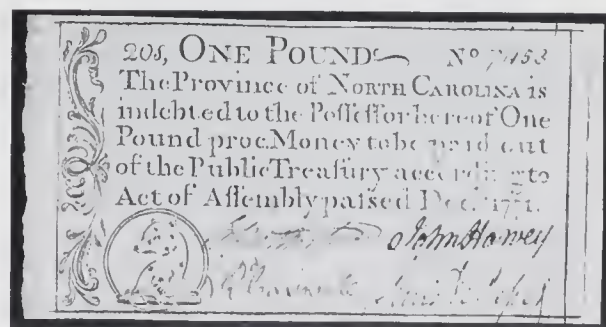 20s, ONE POUND No
The Province of NORTH CAROLINA is
indebted to the Poſſeſſor hereof One
Pound proc. Money to be paid out
of the Public Treaſury according to
Act of Aſſembly paſsed Dec. 1771.
John Harvey